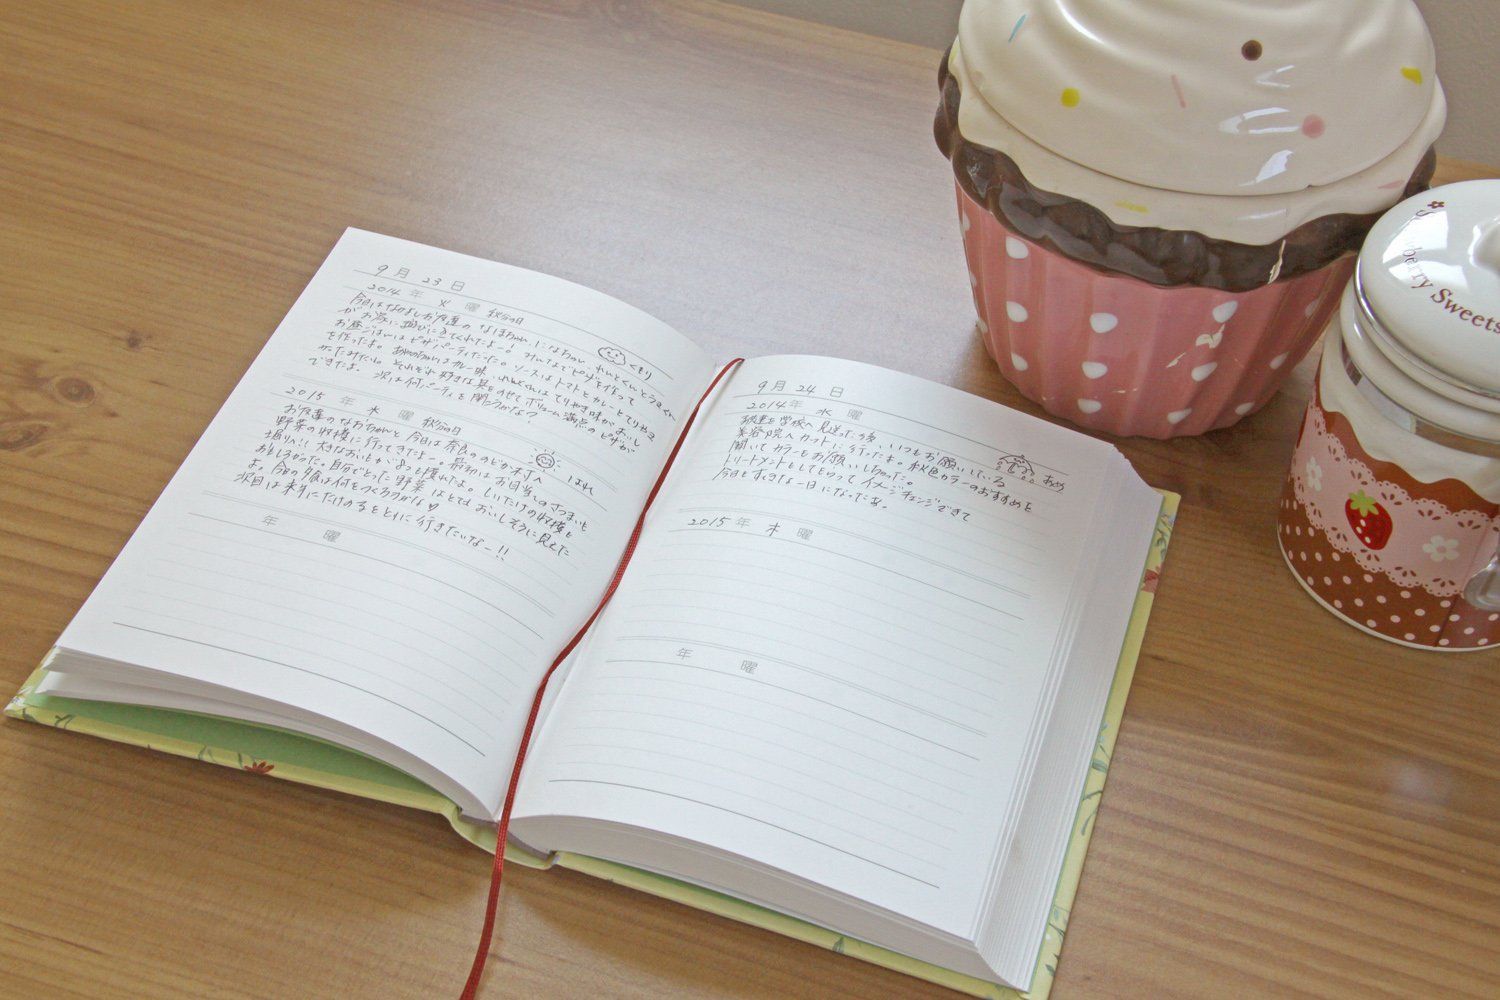 9月 23日
2014年 火曜 秋分の日 くもり
今日はなかよしお友達の なほちゃん になちゃん れんとくんとうまくん
がお家に遊びにきてくれたよー。みんなでピザを作って
お昼ごはんはピザパーティだった。ソースはトマトとカレーとてりやき
を作ったよ。カレー味 れんとくんはてりやき味がおいし
かったみたい。それぞれ好きな具をのせてボリューム満点のピザが
できたよ。次は何パーティを開こうかな?
2015年 水曜 秋分の日 はれ
お友達のなおちゃんと今日は奈良ののどか村へ
野菜の収穫に行ってきたよー。最初はお目当てのさつまいも
掘り!! 大きなおいもが 穫れたよ。しいたけの収穫も
おもしろかった。自分でとった野菜はとてもおいしそうに見えた
よ。今夜のご飯は何をつくろうかな♡
次回は 行きたいなー!!
年 曜
9月 24日
2014年 水曜 あめ
お友達を学校へ見送った後、いつもお願いしている
美容院へカットに行ったよ。秋色カラーのおすすめを
聞いてカラーをお願いしちゃった。
トリートメントもしてもらってイメージチェンジできて
今日もすてきな一日になったよ。
2015年 木曜
年 曜
Strawberry Sweets